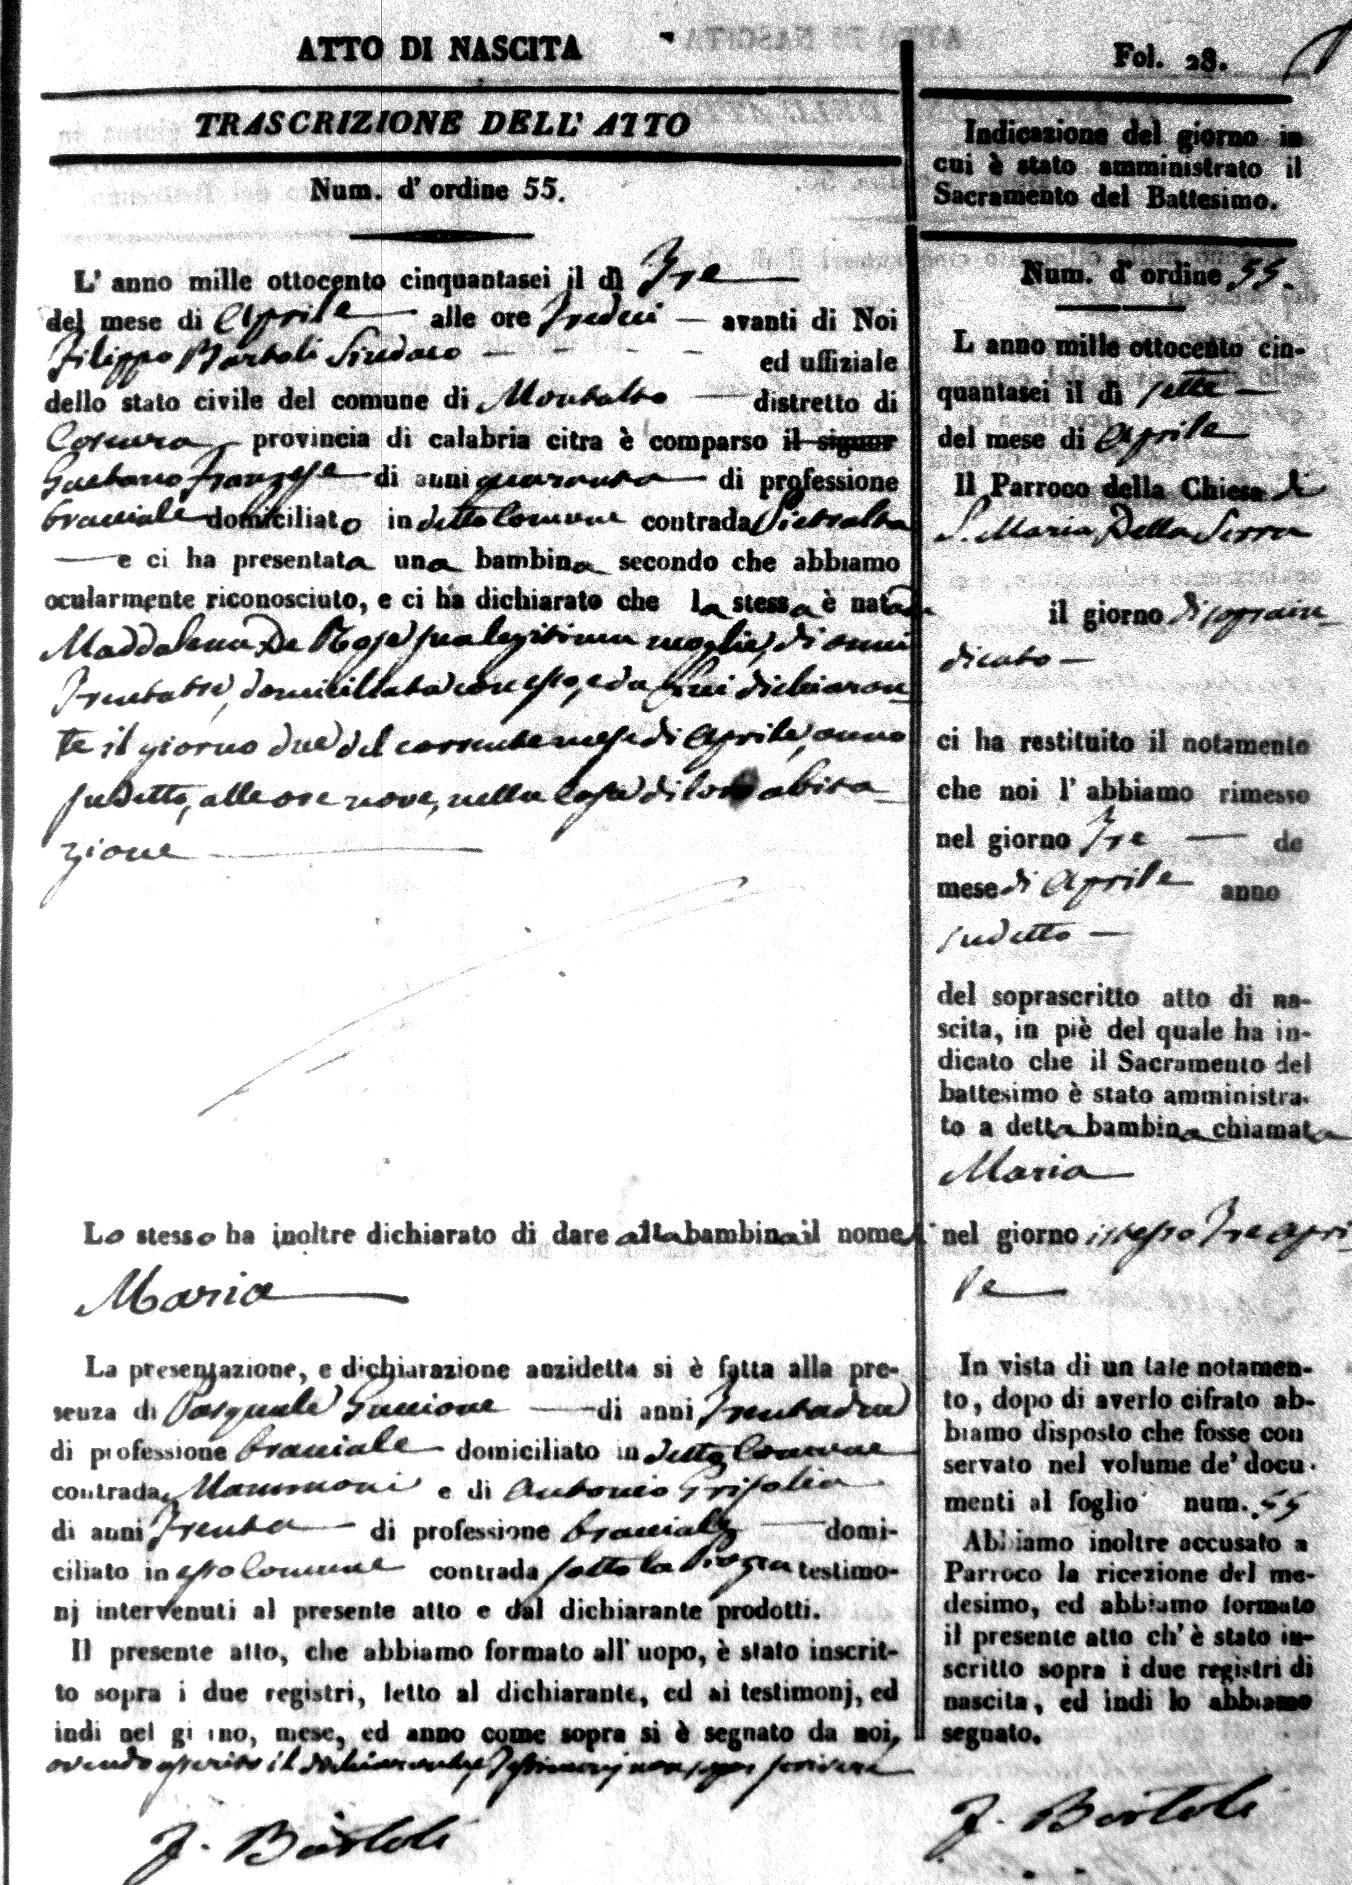 ATTO DI NASCITA
TRASCRIZIONE DELL' ATTO
Num. d' ordine 55.
L' anno mille ottocento cinquantasei il dì Tre
del mese di Aprile alle ore Tredici avanti di Noi
Filippo Bartoli Sindaco ed uffiziale
dello stato civile del comune di Montalto distretto di
Cosenza provincia di calabria citra è comparso il signor
Gaetano Franzese di anni quaranta di professione
bracciale domiciliato in detto Comune contrada Pietralta
e ci ha presentata una bambina secondo che abbiamo
ocularmente riconosciuto, e ci ha dichiarato che la stessa è nata da
Maddalena De Rose sua legitima moglie, di anni
Trentatre, domiciliata con esso, e da lui dichiaran
te il giorno due del corrente mese di Aprile, anno
sudetto, alle ore nove, nella casa di loro abita
zione
Lo stesso ha inoltre dichiarato di dare alla bambina il nome
Maria
La presentazione, e dichiarazione anzidetta si è fatta alla pre-
senza di Pasquale di anni Trentadue
di professione bracciale domiciliato in detto Comune
contrada Mammoni e di Antonio Grisolia
di anni Trenta di professione bracciale domi-
ciliato in esso Comune contrada sotto la Piazza testimo-
nj intervenuti al presente atto e dal dichiarante prodotti.
Il presente atto, che abbiamo formato all' uopo, è stato inscrit-
to sopra i due registri, letto al dichiarante, ed ai testimonj, ed
indi nel giorno, mese, ed anno come sopra si è segnato da noi,
avendo asserito il dichiarante, e Testimonj non saper scrivere
F. Bartoli
Fol. 28.
Indicazione del giorno in
cui è stato amministrato il
Sacramento del Battesimo.
Num. d' ordine 55.
L anno mille ottocento cin-
quantasei il dì sette
del mese di Aprile
Il Parroco della Chiesa di
S. Maria Della Serra
il giorno di soprain
dicato
ci ha restituito il notamento
che noi l' abbiamo rimesso
nel giorno Tre de
mese di Aprile anno
sudetto
del soprascritto atto di na-
scita, in piè del quale ha in-
dicato che il Sacramento del
battesimo è stato amministra-
to a detta bambina chiamata
Maria
nel giorno istesso Tre Apri
le
In vista di un tale notamen-
to, dopo di averlo cifrato ab-
biamo disposto che fosse con
servato nel volume de' docu-
menti al foglio num. 55
Abbiamo inoltre accusato a
Parroco la ricezione del me-
desimo, ed abbiamo formato
il presente atto ch' è stato in-
scritto sopra i due registri di
nascita, ed indi lo abbiamo
segnato.
F. Bartoli